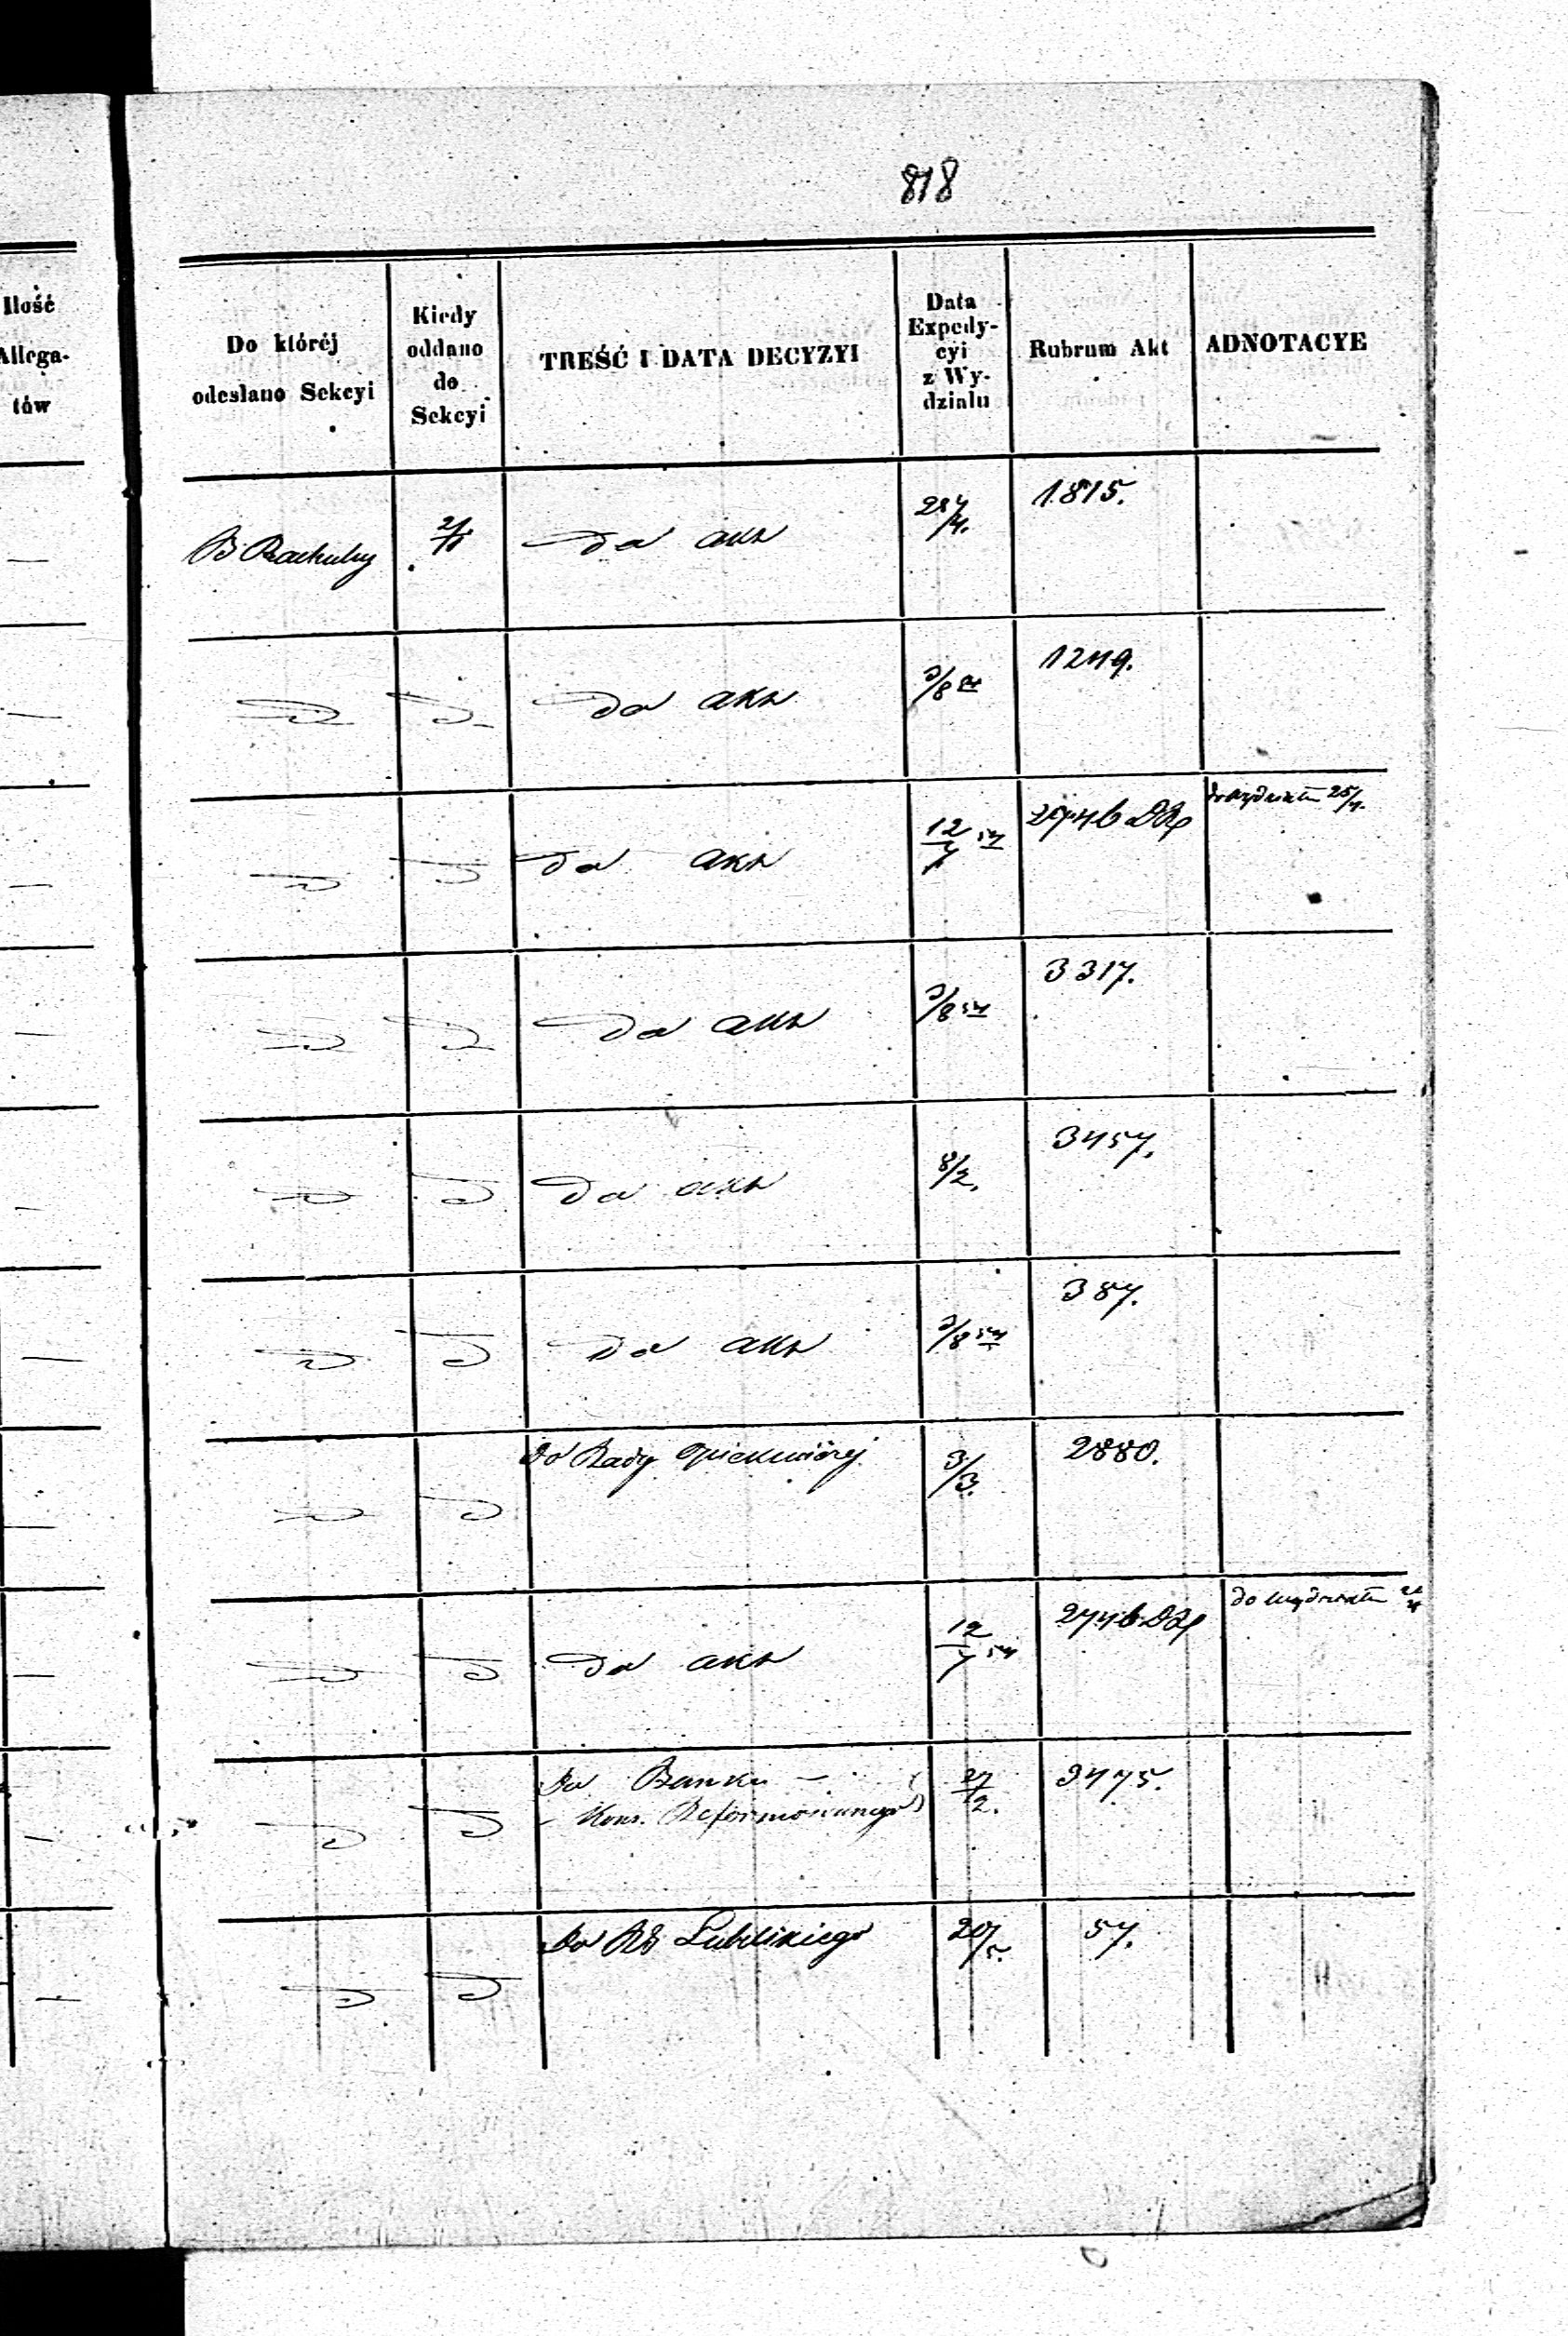 818
Ilość
Allega-
tów
Do któréj
odesłano Sekcyi
Kiedy
oddano
do
Sekcyi
TREŚĆ I DATA DECYZYI
Data
Expedy-
cyi
z Wy-
działu
Rubrum Akt
ADNOTACYE
B
Do akt
1815.
Do akt
1249.
Do akt
12/7 54
2746
do wydziału 25/4.
Do akt
3/8 54
3317.
Do akt
8/2.
3457.
Do akt
3/8 54
387.
Do Rady Opiekuńczéj
3/3.
2880.
Do akt
12/7 54
2746
do wydziału
Do Banku –
– Kons. Reformowanego
27/2.
3475.
Do Lubelskiego
20/5.
57.